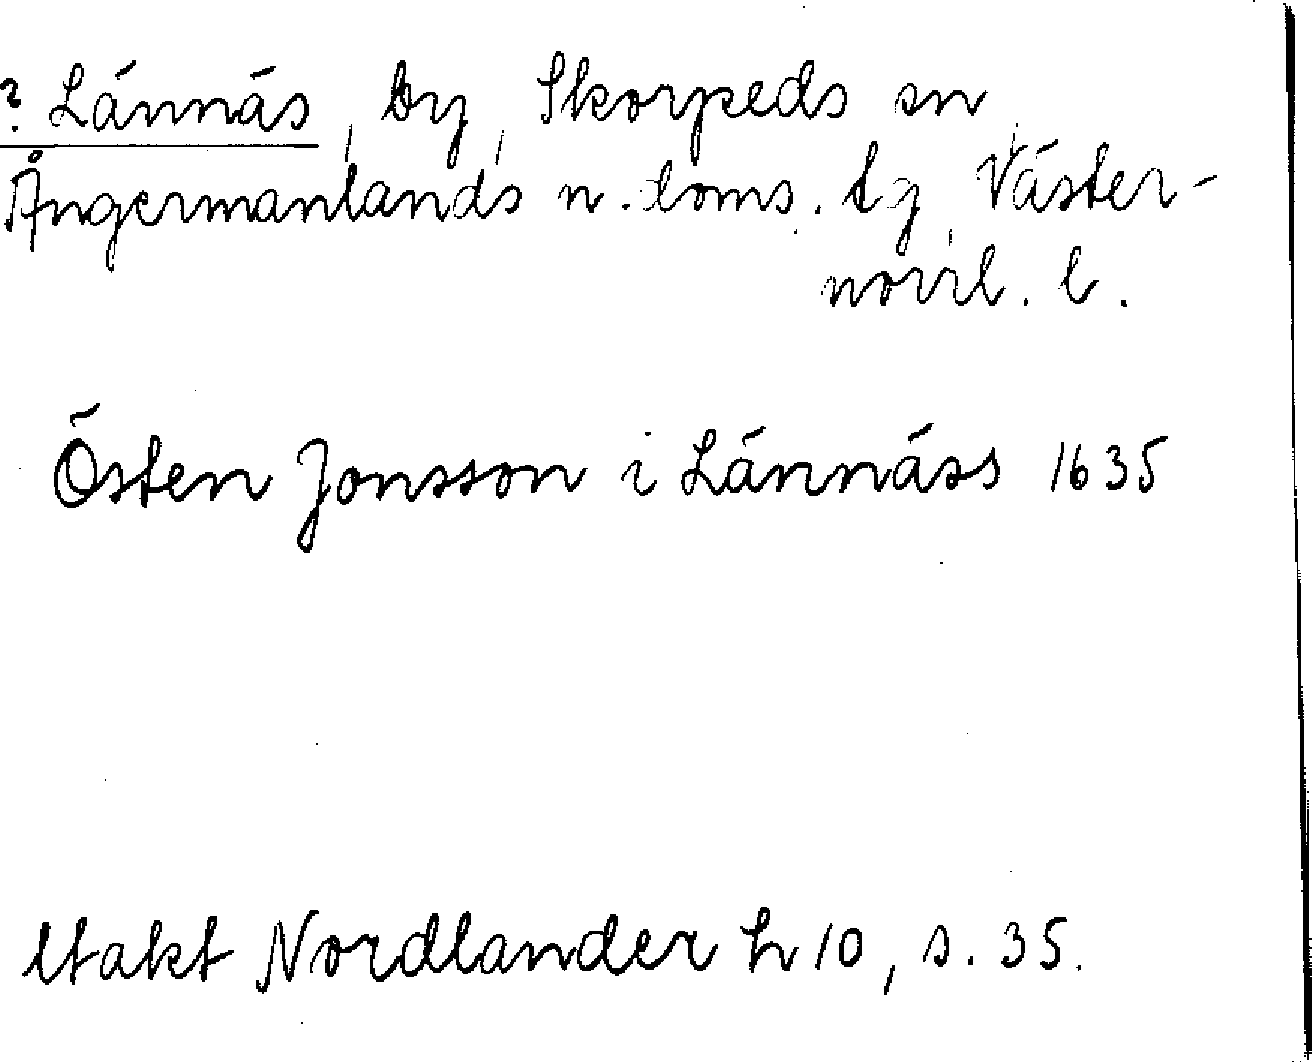 ? Lännäs, by, Skorpeds sn,
Ångermanlands n. doms. tg, Väster-
norrl. l.
Östen Jonsson i Lännäss 1635
Utakt Nordlander h 10, s. 35.